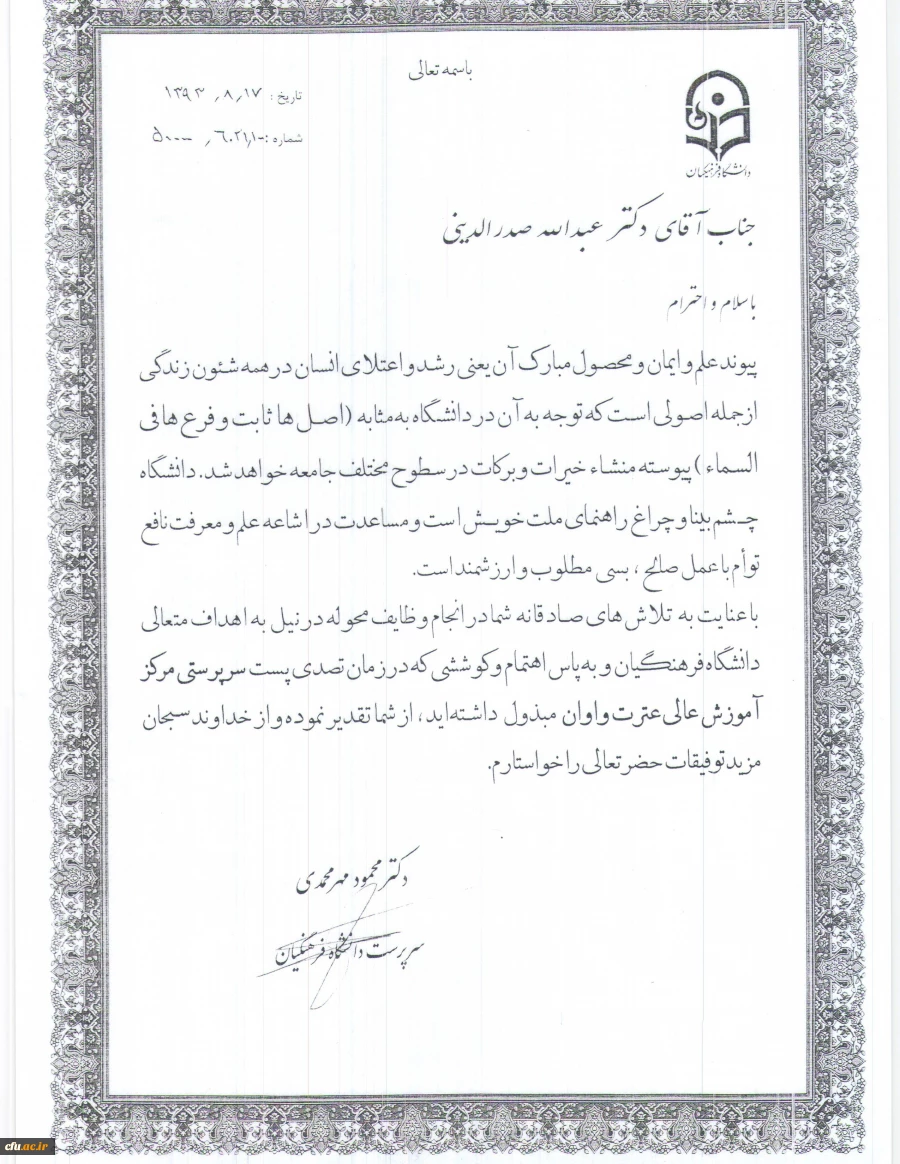 باسمه تعالی
تاریخ: ۱۳۹۳/۸/۱۷
شماره: ۵۰۰۰۰/۶۰۲۱/۱۰
دانشگاه فرهنگیان
جناب آقای دکتر عبدالله صدرالدینی
با سلام و احترام
پیوند علم و ایمان و محصول مبارک آن یعنی رشد و اعتلای انسان در همه شئون زندگی
از جمله اصولی است که توجه به آن در دانشگاه به مثابه (اصل ها ثابت و فرع ها فی
السماء) پیوسته منشاء خیرات و برکات در سطوح مختلف جامعه خواهد شد. دانشگاه
چشم بینا و چراغ راهنمای ملت خویش است و مساعدت در اشاعه علم و معرفت نافع
توأم با عمل صالح، بسی مطلوب و ارزشمند است.
با عنایت به تلاش های صادقانه شما در انجام وظایف محوله در نیل به اهداف متعالی
دانشگاه فرهنگیان و به پاس اهتمام و کوششی که در زمان تصدی پست سرپرستی مرکز
آموزش عالی عترت واوان مبذول داشته‌اید، از شما تقدیر نموده و از خداوند سبحان
مزید توفیقات حضرتعالی را خواستارم.
دکتر محمود مهرمحمدی
سرپرست دانشگاه فرهنگیان
cfu.ac.ir